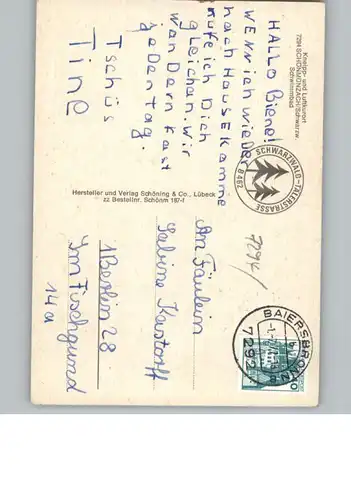 Kneipp- und Luftkurort
7294 SCHÖNMÜNZACH/Schwarzw.
Schwimmbad
HALLO Biene!
WENN ich wieder
nach HAUSE komme
rufe ich Dich
gleich an. Wir
wandern fast
jeden Tag.
Tschüs
Tine
SCHWARZWALD-TÄLERSTRASSE
B 462
Hersteller und Verlag Schöning & Co., Lübeck
zz Bestellnr. Schönm 197-f
7294/
An Fräulein
Sabine Kastorff
1 Berlin 28
Im Fischgrund
14a
BAIERSBRONN
7292